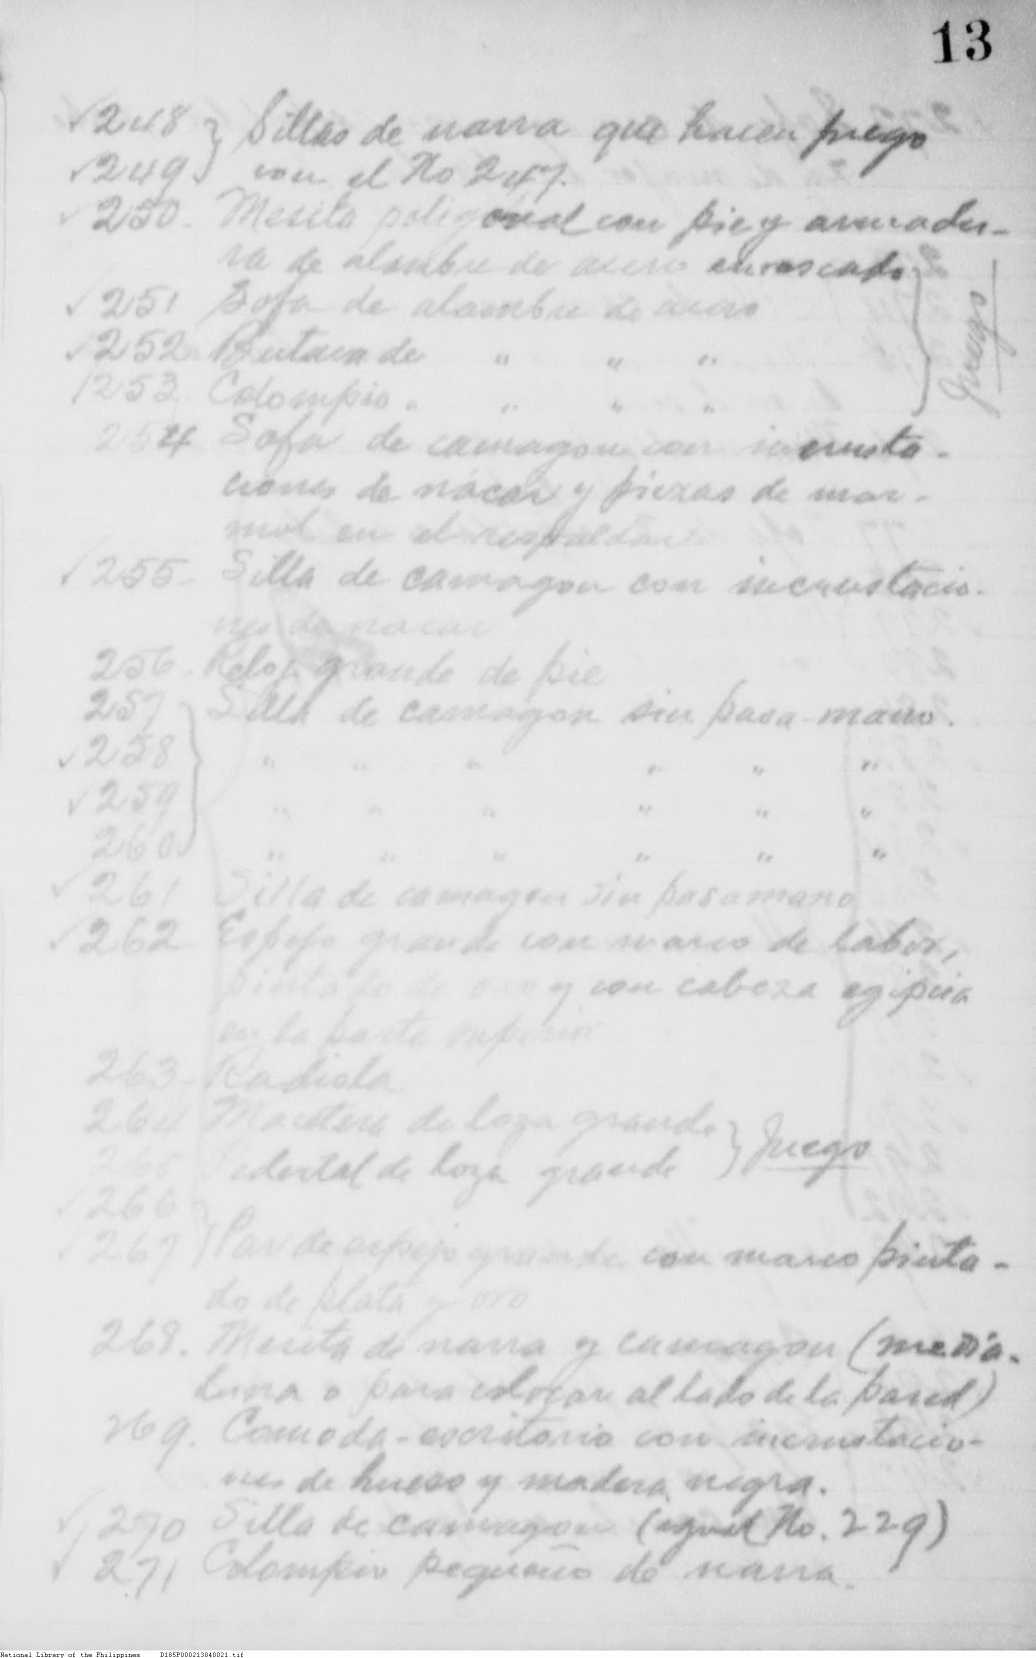 13
✓248 } Sillas de narra que hacen juego
✓249 } con el No 247.
✓250. Mesita poligonal con pie y armadu-
ra de alambre de acero enroscado
✓251 Sofa de alambre de acero
✓252 Butaca de " " "
✓253 Colompio " " " "
Juego
254 Sofa de camagon con incrusta-
ciones de nácar y piezas de mar-
mol en el respaldar
✓255- Silla de camagon con incrustacio-
nes de nacar
256. Reloj grande de pie
257 } Silla de camagon sin pasa-mano.
✓258 " " " " " "
✓259 " " " " " "
260 " " " " " "
✓261 Silla de camagon sin pasamano
✓262 Espejo grande con marco de labor,
pintado de oro y con cabeza egipcia
en la parte superior
263- Radiola
264 Macetera de loza grande } Juego
265 Pedestal de loza grande
✓266
✓267 } Par de espejo grande con marco pinta-
do de plata y oro
268. Mesita de narra y camagon (media-
luna o para colocar al lado de la pared)
269. Comoda-escritorio con incrustacio-
nes de hueso y madera negra.
✓270 Silla de camagon (igual No. 229)
✓271 Colompio pequeño de narra.
National Library of the Philippines D185P000213040021.tif